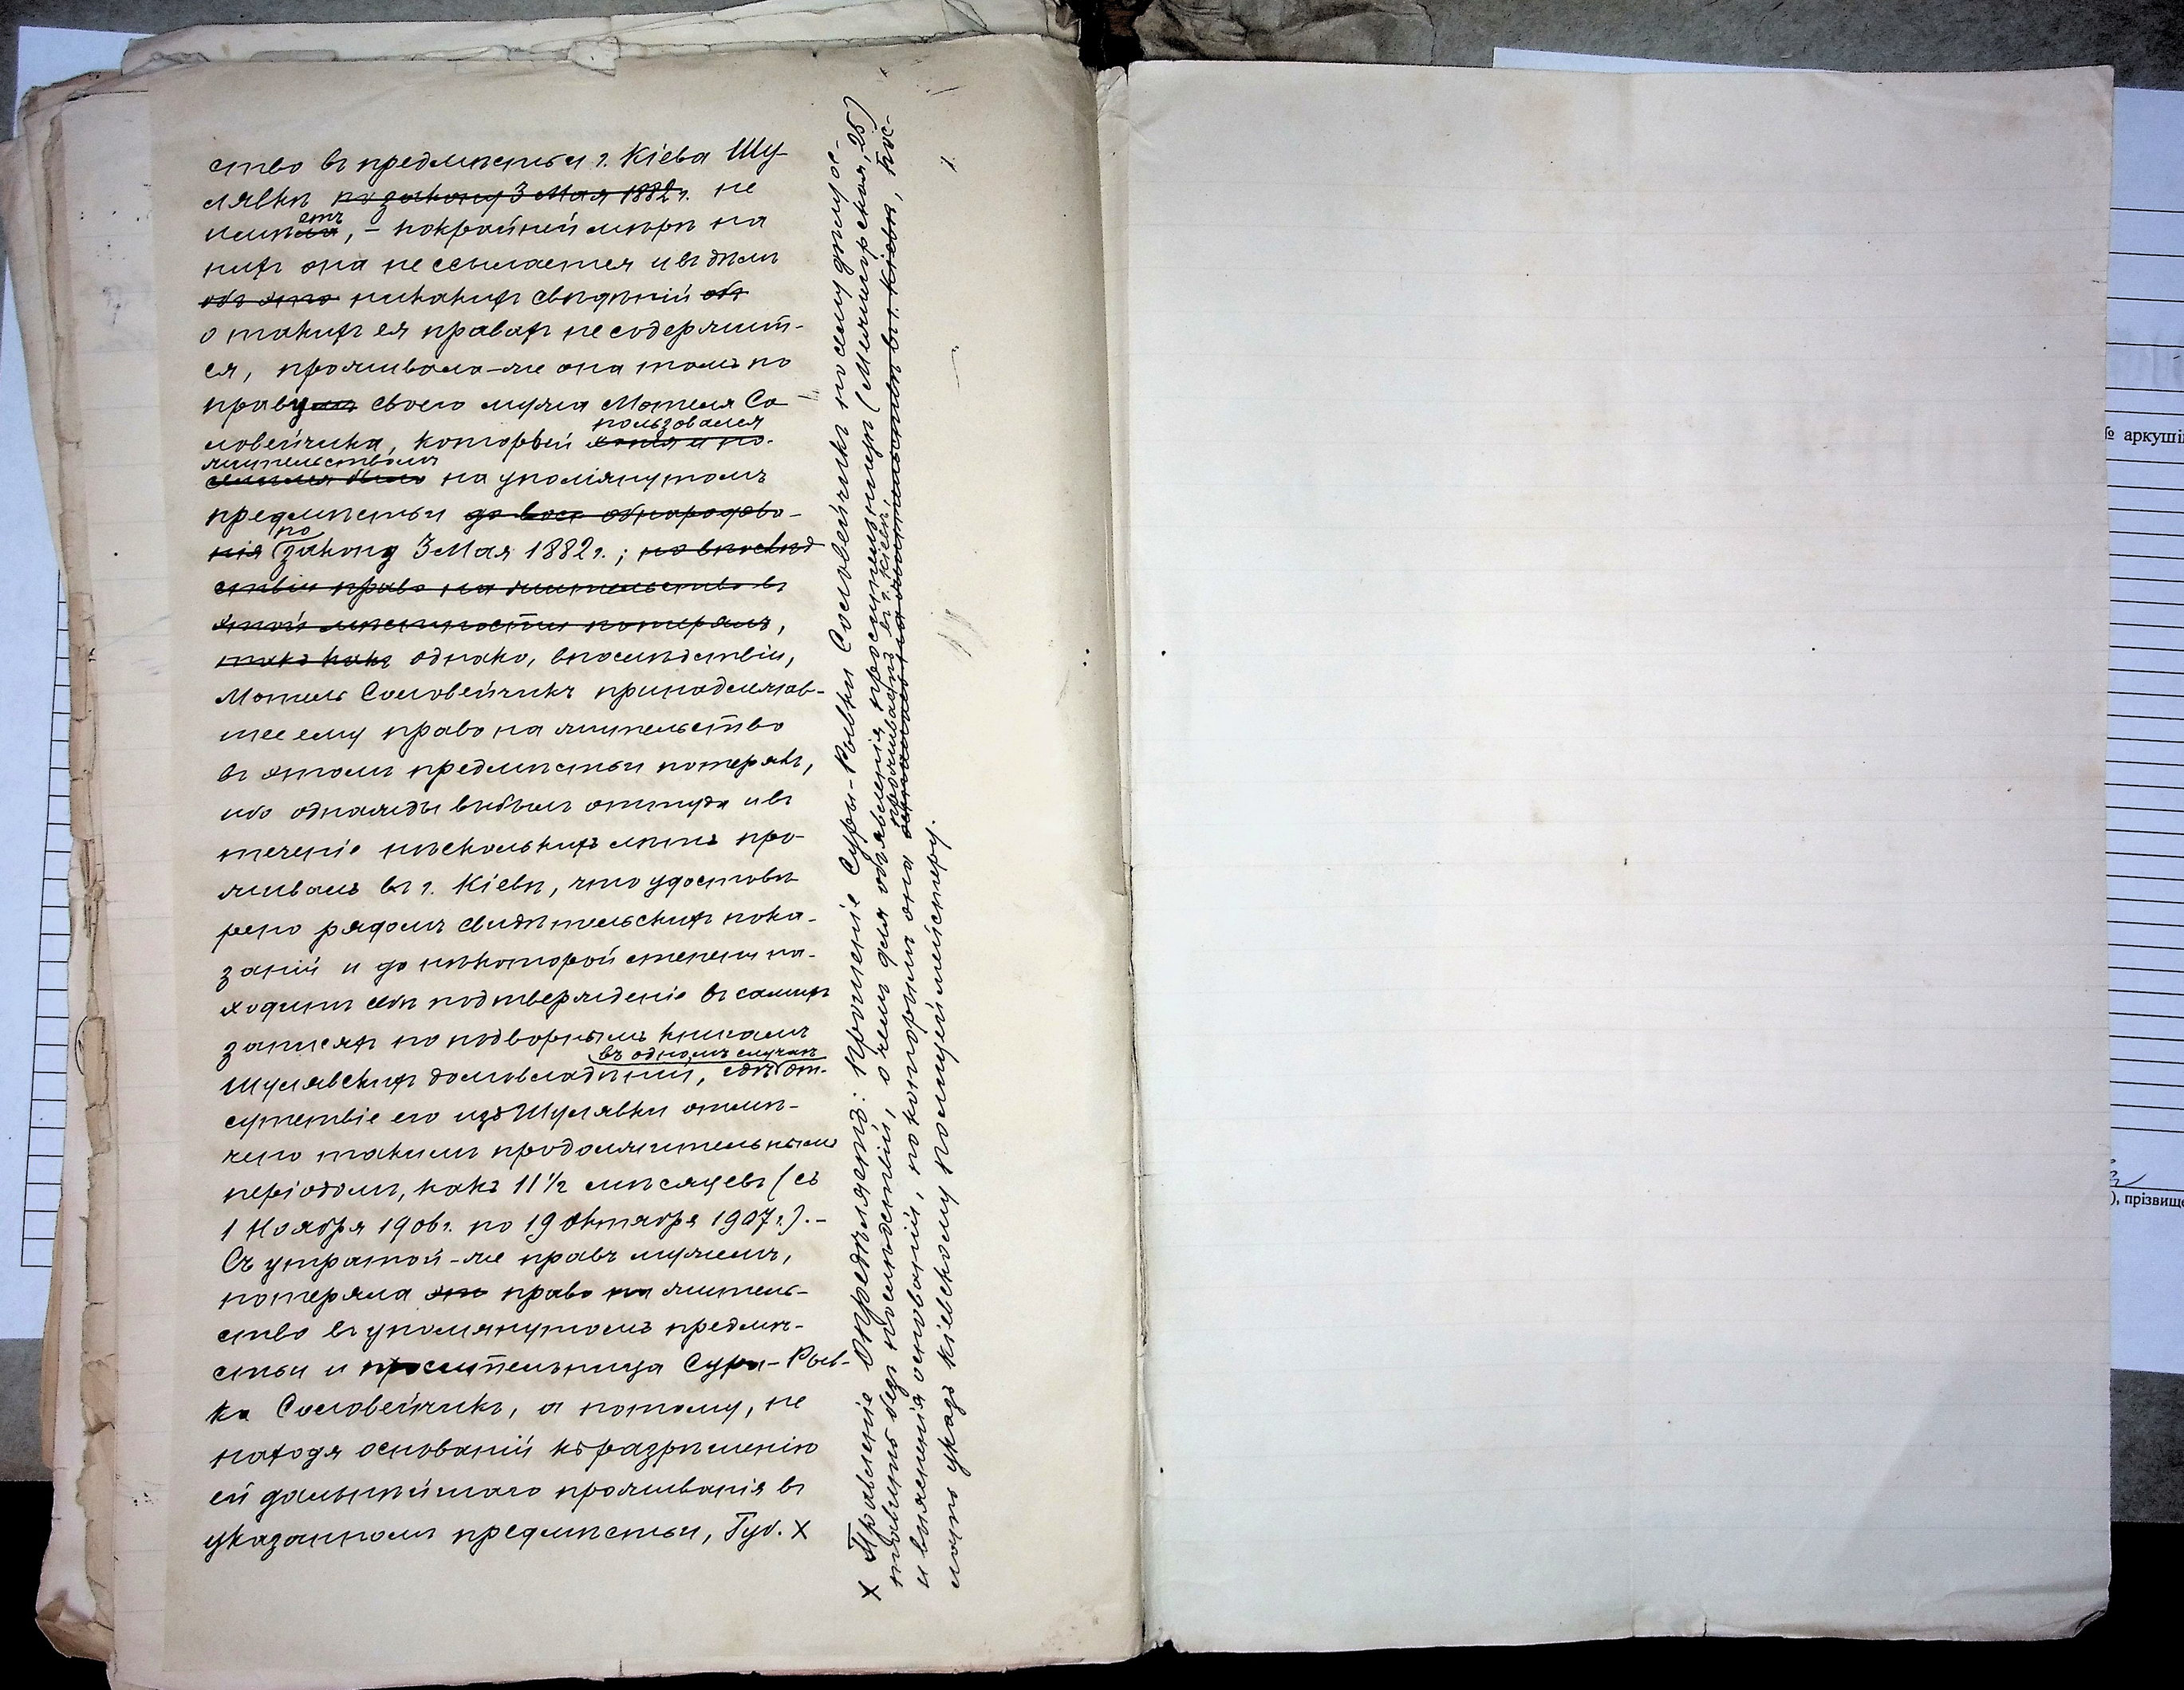 ство въ предмѣстьи г. Кіева Шу-
лявкѣ по закону 3 Мая 1882 г. не
имѣла етъ, - покрайней мѣрѣ на
нихъ она не ссылается и въ дѣлѣ
объ это никакихъ свѣдѣній объ
о такихъ ея правахъ не содержит-
ся, проживала-же она тамъ по
праву своего мужа Мотеля Со-
ловейчика, который хотя и по-
пользовался
жительствомъ
селился было на упомянутомъ
предмѣстьи до восп обнародова-
нія по закону 3 Мая 1882 г.; но впослѣд
ствіи право на жительство въ
этой мѣстности потерялъ,
такъ какъ однако, впослѣдствіи,
Мотель Соловейчикъ принадлежав-
шее ему право на жительство
въ этомъ предмѣстьи потерялъ,
ибо однажды выбылъ оттуда и въ
теченіе нѣсколькихъ лѣтъ про-
живалъ въ г. Кіевѣ, что удостовѣ
рено рядомъ свидѣтельскихъ пока-
заній и до нѣкоторой степени на-
ходитъ себѣ подтвержденіе въ самихъ
записяхъ по подворнымъ книгамъ
въ одномъ случаѣ
Шулявскихъ домовладѣній, гдѣ от-
сутствіе его изъ Шулявки отмѣ-
чено такимъ продолжительнымъ
періодомъ, какъ 11 1/2 мѣсяцевъ (съ
1 Ноября 1906 г. по 19 Октября 1907 г.).-
Съ утратой-же правъ мужемъ,
потеряла это право на житель-
ство въ упомянутомъ предмѣ-
стьи и просительница Сура-Рыв-
ка Соловейчикъ, а потому, не
находя основаній къ разрѣшенію
ей дальнѣйшаго проживанія въ
указанномъ предмѣстьи, Губ. х
х Правленіе Опредѣляетъ: прошеніе Суры-Рывки Соловейчикъ по сему дѣлу ос-
тавить безъ послѣдствій, о чемъ для объявленія просительницѣ (Межигорская, 25)
проживаетъ въ г. Кіевѣ,
и выясненія основаній, по которымъ она осталась на жительствѣ въ г. Кіевѣ, пос-
лать указъ Кіевскому Полицеймейстеру.